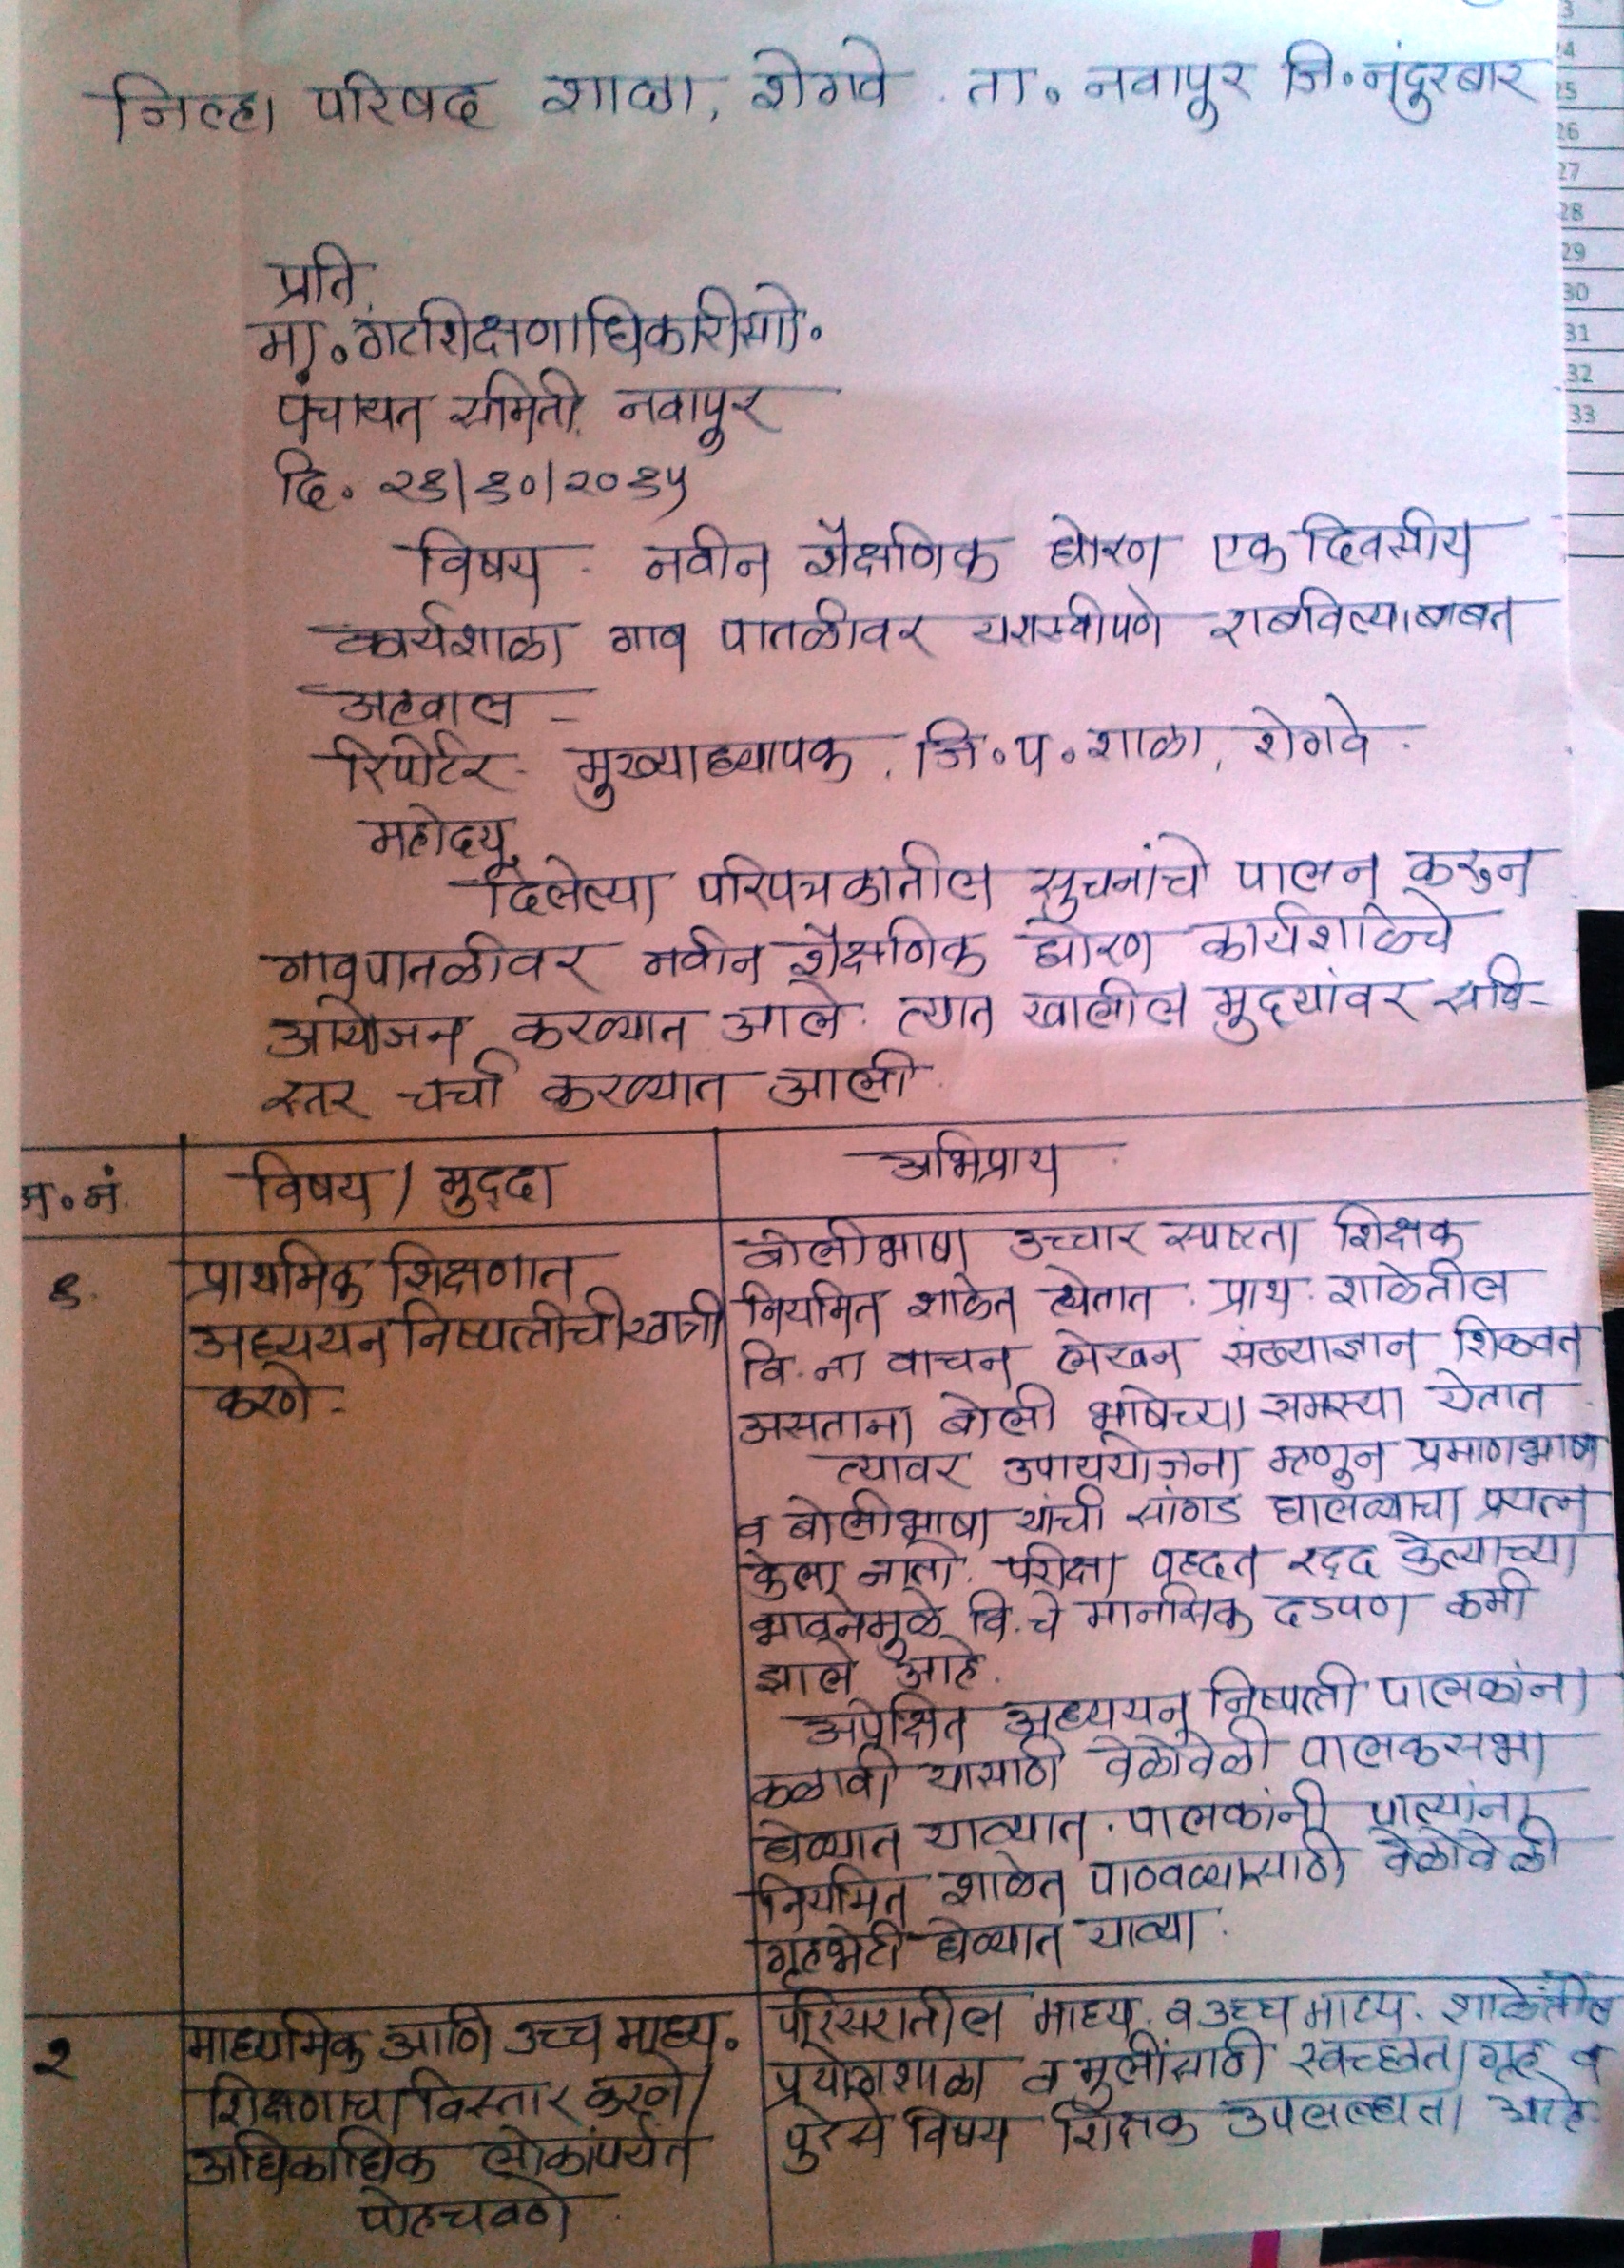 जिल्हा परिषद शाळा, शेगवे. ता. नवापूर जि. नंदुरबार
24
25
26
27
28
29
30
31
32
33
प्रति,
मा. गटशिक्षणाधिकारीसो.
पंचायत समिती, नवापूर
दि. २१/१०/२०१५
विषय - नवीन शैक्षणिक धोरण एकदिवसीय
कार्यशाळा गाव पातळीवर यशस्वीपणे राबविल्याबाबत
अहवाल -
रिपोर्टर - मुख्याध्यापक, जि. प. शाळा, शेगवे.
महोदय,
दिलेल्या परिपत्रकातील सुचनांचे पालन करुन
गावपातळीवर नवीन शैक्षणिक धोरण कार्यशाळेचे
आयोजन करण्यात आले. त्यात खालील मुद्द्यांवर सवि-
स्तर चर्चा करण्यात आली.
अ. नं.
विषय / मुद्दा
अभिप्राय
१.
प्राथमिक शिक्षणात
अध्ययन निष्पत्तीची खात्री
करणे -
बोलीभाषा उच्चार स्पष्टता शिक्षक
नियमित शाळेत येतात. प्राथ. शाळेतील
वि. ना वाचन लेखन संख्याज्ञान शिकवत
असताना बोली भाषेच्या समस्या येतात.
त्यावर उपाययोजना म्हणुन प्रमाणभाषा
व बोलीभाषा यांची सांगड घालण्याचा प्रयत्न
केला जातो. परीक्षा पध्दत रद्द केल्याच्या
भावनेमुळे वि. चे मानसिक दडपण कमी
झाले आहे.
अपेक्षित अध्ययन निष्पत्ती पालकांना
कळावी यासाठी वेळोवेळी पालकसभा
घेण्यात याव्यात. पालकांनी पाल्यांना
नियमित शाळेत पाठवण्यासाठी वेळोवेळी
गृहभेटी घेण्यात याव्या.
२
माध्यमिक आणि उच्च माध्य.
शिक्षणाचा विस्तार करणे /
अधिकाधिक लोकांपर्यंत
पोहचवणे.
परिसरातील माध्य. व उच्च माध्य. शाळेतील
प्रयोगशाळा व मुलींसाठी स्वच्छता गृह व
पुरेसे विषय शिक्षक उपलब्धता आहे.